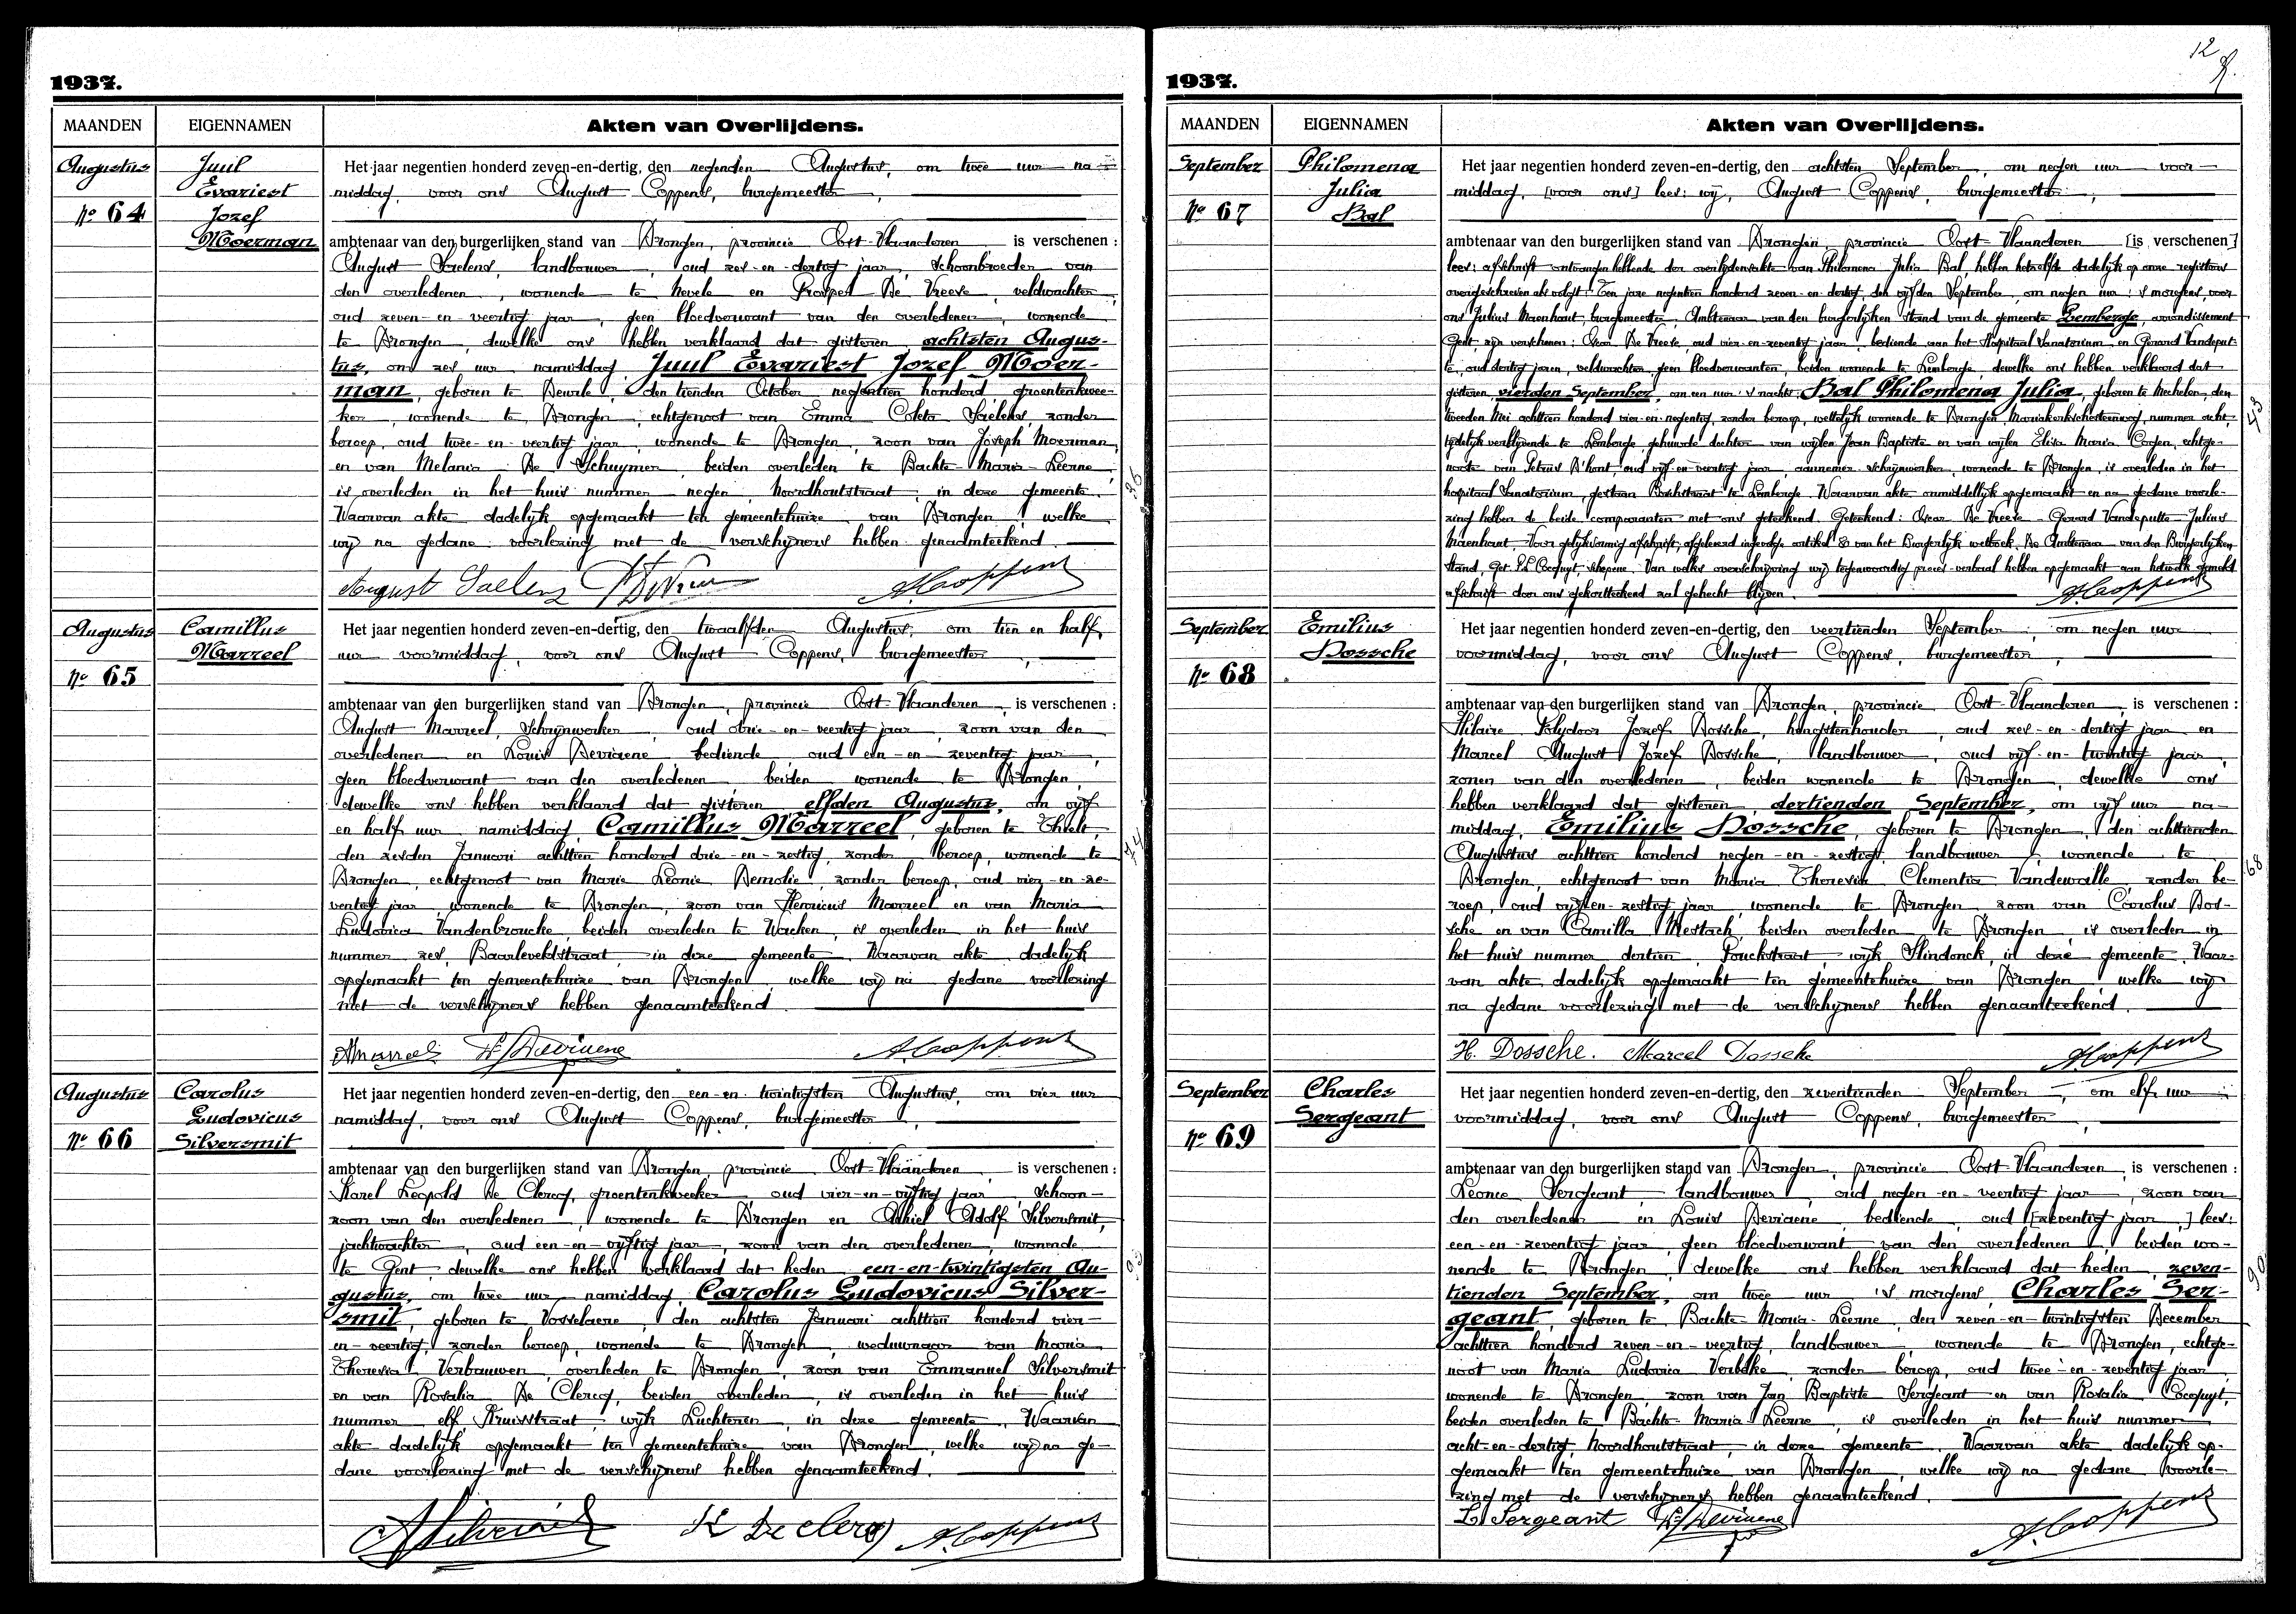 1937.
MAANDEN EIGENNAMEN Akten van Overlijdens.
Augustus
Nº 64
Juul
Evariest
Jozef
Moerman
Het jaar negentien honderd zeven-en-dertig, den negenden Augustus, om twee uur na-
middag, voor ons August Coppens, burgemeester,
ambtenaar van den burgerlijken stand van Drongen, provincie Oost-Vlaanderen is verschenen :
August Saelens, landbouwer, oud zes-en-dertig jaar, schoonbroeder van
den overledenen, wonende te Nevele en Prosper De Vreese, veldwachter,
oud zeven-en-veertig jaar, geen bloedverwant van den overledenen, wonende
te Drongen, dewelke ons hebben verklaard dat gisteren, achtsten Augus-
tus, om zes uur namiddag, Juul Evariest Jozef Moer-
man, geboren te Deurle, den tienden October negentien honderd, groentenkwee-
ker, wonende te Drongen, echtgenoot van Emma Coleta Saelens, zonder
beroep, oud twee-en-veertig jaar, wonende te Drongen, zoon van Joseph Moerman
en van Melania De Schuymer, beiden overleden te Bachte-Maria-Leerne,
is overleden in het huis nummer negen, Noordhoutstraat, in deze gemeente.
Waarvan akte dadelijk opgemaakt ten gemeentehuize van Drongen, welke
wij na gedane voorlezing met de verschijners hebben genaamteekend.
August Saelens A. Coppens
Augustus
Nº 65
Camillus
Marreel
Het jaar negentien honderd zeven-en-dertig, den twaalfden Augustus, om tien en half
uur voormiddag, voor ons August Coppens, burgemeester,
ambtenaar van den burgerlijken stand van Drongen, provincie Oost-Vlaanderen, is verschenen :
August Marreel, schrijnwerker, oud drie-en-veertig jaar, zoon van den
overledenen en Louis Deviaene, bediende, oud een-en-zeventig jaar,
geen bloedverwant van den overledenen, beiden wonende te Drongen,
dewelke ons hebben verklaard dat gisteren, elfden Augustus, om vijf
en half uur namiddag, Camillus Marreel, geboren te Thielt,
den zesden Januari achttien honderd drie-en-zestig, zonder beroep, wonende te
Drongen, echtgenoot van Marie Leonie Demolie, zonder beroep, oud vier-en-ze-
ventig jaar, wonende te Drongen, zoon van Henricus Marreel en van Maria
Ludovica Vandenbroucke, beiden overleden te Wacken, is overleden in het huis
nummer zes, Baarleveldstraat, in deze gemeente. Waarvan akte dadelijk
opgemaakt ten gemeentehuize van Drongen, welke wij na gedane voorlezing
met de verschijners hebben genaamteekend.
AMarreel L. Deviaene A. Coppens
Augustus
Nº 66
Carolus
Ludovicus
Silversmit
Het jaar negentien honderd zeven-en-dertig, den een-en-twintigsten Augustus, om vier uur
namiddag, voor ons August Coppens, burgemeester,
ambtenaar van den burgerlijken stand van Drongen, provincie Oost-Vlaanderen, is verschenen :
Karel Leopold De Clercq, groentenkweeker, oud vier-en-vijftig jaar, schoon-
zoon van den overledenen, wonende te Drongen en Achiel Adolf Silversmit,
jachtwachter, oud een-en-vijftig jaar, zoon van den overledenen, wonende
te Gent, dewelke ons hebben verklaard dat heden, een-en-twintigsten Au-
gustus, om twee uur namiddag, Carolus Ludovicus Silver-
smit, geboren te Vosselaere, den achtsten Januari achttien honderd vier-
en-veertig, zonder beroep, wonende te Drongen, weduwnaar van Maria
Theresia Verbauwen, overleden te Drongen, zoon van Emmanuel Silversmit
en van Rosalia De Clercq, beiden overleden, is overleden in het huis
nummer elf, Kruisstraat, wijk Luchteren, in deze gemeente. Waarvan
akte dadelijk opgemaakt ten gemeentehuize van Drongen, welke wij na ge-
dane voorlezing met de verschijners hebben genaamteekend.
K De Clercq A. Coppens
12
1937.
MAANDEN EIGENNAMEN Akten van Overlijdens.
September
Nº 67
Philomena
Julia
Bal
Het jaar negentien honderd zeven-en-dertig, den achtsten September, om negen uur voor-
middag, [voor ons] lees: wij, August Coppens, burgemeester,
ambtenaar van den burgerlijken stand van Drongen, provincie Oost-Vlaanderen [is verschenen]
lees: afschrift ontvangen hebbende der overlijdensakte van Philomena Julia Bal, hebben hetzelfde dadelijk op onze registers
overgeschreven als volgt: Ten jare negentien honderd zeven-en-dertig, den vijfden September, om negen uur 's morgens, voor
ons Julius Maenhaut, burgemeester, Ambtenaar van den burgerlijken stand van de gemeente Lemberge, arrondissement
Gent, zijn verschenen: Oscar De Vreese, oud vier-en-zeventig jaar, bediende aan het Hospitaal Sanatorium, en Gerard Vandeput-
te, oud dertig jaren, veldwachter, geen bloedverwanten, beiden wonende te Lemberge, dewelke ons hebben verklaard dat
gisteren, vierden September, om een uur 's nachts, Bal Philomena Julia, geboren te Mechelen, den
tweeden Mei achttien honderd vier-en-negentig, zonder beroep, wettelijk wonende te Drongen, Mariakerkschesteenweg, nummer acht,
tijdelijk verblijvende te Lemberge, gehuwde dochter van wijlen Jean Baptiste en van wijlen Elisa Maria Corsen, echtge-
noote van Petrus D'hont, oud vijf-en-veertig jaar, aannemer-schrijnwerker, wonende te Drongen, is overleden in het
hospitaal Sanatorium, gestaan Boschstraat te Lemberge. Waarvan akte onmiddellijk opgemaakt en na gedane voorle-
zing hebben de beide comparanten met ons geteekend. Geteekend: Oscar De Vreese - Gerard Vandeputte - Julius
Maenhaut. Voor gelijkvormig afschrift, afgeleverd ingevolge artikel 80 van het Burgerlijk wetboek. De Ambtenaar van den Burgerlijken
Stand, Get. Cocquyt, schepene. Van welke overschrijving wij tegenwoordig proces-verbaal hebben opgemaakt aan hetwelk gemeld
afschrift door ons gekortteekend zal gehecht blijven.
A. Coppens
September
Nº 68
Emilius
Dossche
Het jaar negentien honderd zeven-en-dertig, den veertienden September, om negen uur
voormiddag, voor ons August Coppens, burgemeester,
ambtenaar van den burgerlijken stand van Drongen, provincie Oost-Vlaanderen, is verschenen :
Hilaire Polydoor Jozef Dossche, hengstenhouder, oud zes-en-dertig jaar en
Marcel August Jozef Dossche, landbouwer, oud vijf-en-twintig jaar,
zonen van den overledenen, beiden wonende te Drongen, dewelke ons
hebben verklaard dat gisteren, dertienden September, om vijf uur na-
middag, Emilius Dossche, geboren te Drongen, den achttienden
Augustus achttien honderd negen-en-zestig, landbouwer, wonende te
Drongen, echtgenoot van Maria Theresia Clementia Vandewalle, zonder be-
roep, oud vijf-en-zestig jaar, wonende te Drongen, zoon van Carolus Dos-
sche en van Camilla Mestach, beiden overleden te Drongen, is overleden in
het huis nummer dertien, Fouckstraat, wijk Slindonck, in deze gemeente. Waar-
van akte dadelijk opgemaakt ten gemeentehuize van Drongen, welke wij
na gedane voorlezing met de verschijners hebben genaamteekend.
H. Dossche. Marcel Dossche A. Coppens
September
Nº 69
Charles
Sergeant
Het jaar negentien honderd zeven-en-dertig, den zeventienden September, om elf uur
voormiddag, voor ons August Coppens, burgemeester,
ambtenaar van den burgerlijken stand van Drongen, provincie Oost-Vlaanderen, is verschenen :
Leonce Sergeant, landbouwer, oud negen-en-veertig jaar, zoon van
den overledenen en Louis Deviaene, bediende, oud [zeventig jaar,] lees:
een-en-zeventig jaar, geen bloedverwant van den overledenen, beiden wo-
nende te Drongen, dewelke ons hebben verklaard dat heden, zeven-
tienden September, om twee uur 's morgens, Charles Ser-
geant, geboren te Bachte-Maria-Leerne, den zeven-en-twintigsten December
achttien honderd zeven-en-veertig, landbouwer, wonende te Drongen, echtge-
noot van Maria Ludovica Verbeke, zonder beroep, oud twee-en-zeventig jaar,
wonende te Drongen, zoon van Jan Baptiste Sergeant en van Rosalia Cocquyt,
beiden overleden te Bachte-Maria-Leerne, is overleden in het huis nummer
acht-en-dertig, Noordhoutstraat, in deze gemeente. Waarvan akte dadelijk op-
gemaakt ten gemeentehuize van Drongen, welke wij na gedane voorle-
zing met de verschijners hebben genaamteekend.
L. Sergeant L. Deviaene A. Coppens